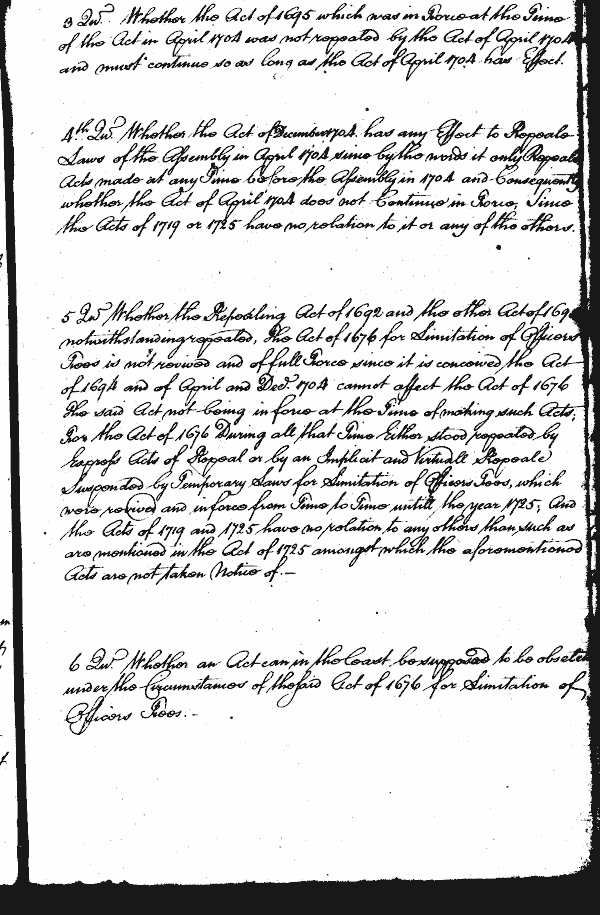 3 Qu.r Whether the Act of 1695 which was in Force at the Time
of the Act in April 1704 was not repealed by the Act of April 1704
and must continue so as long as the Act of April 1704 has Effect.
4th Qu.r Whether the Act of December 1704 has any Effect to Repeale
Laws of the Assembly in April 1704 since by the words it only Repeals
Acts made at any Time before the Assembly in 1704 and Consequently
whether the Act of April 1704 does not Continue in Force, Since
the Acts of 1719 or 1725 have no relation to it or any of the others.
5 Qu.r Whether the Repealing Act of 1692 and the other Act of 169
notwithstanding repealed, the Act of 1676 for Limitation of Officers
Fees is not revived and of full Force since it is conceived the Act
of 1694 and of April and Dec.r 1704 cannot affect the Act of 1676
the said Act not being in force at the Time of making such Acts;
For the Act of 1676 During all that Time Either stood repealed by
Express Acts of Repeal or by an Implicit and Virtuall Repeale
Suspended by Temporary Laws for Limitation of Officers Fees, which
were revived and inforce from Time to Time untill the year 1725; And
the Acts of 1719 and 1725 have no relation to any others than such as
are mentioned in the Act of 1725 amongst which the aforementioned
Acts are not taken Notice of.—
6 Qu.r Whether an Act can in the least be supposed to be obsolete
under the Circumstances of the said Act of 1676 for Limitation of
Officers Fees.—